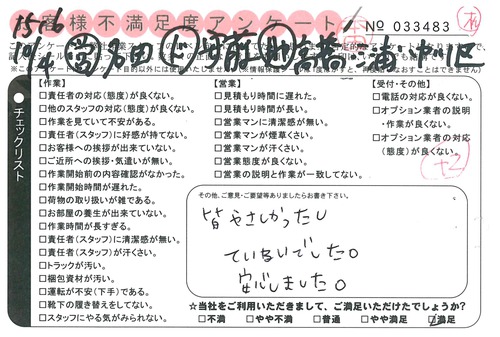 15-16
お客様不満足度アンケート
№ 033483
チェックリスト
【作業】
□責任者の対応(態度)が良くない。
□他のスタッフの対応(態度)が良くない。
□作業を見ていて不安がある。
□責任者(スタッフ)に好感が持てない。
□お客様への挨拶が出来ていない。
□ご近所への挨拶・気遣いが無い。
□作業開始前の内容確認がなかった。
□作業開始時間が遅れた。
□荷物の取り扱いが雑である。
□お部屋の養生が出来ていない。
□作業時間が長すぎる。
□責任者(スタッフ)に清潔感が無い。
□責任者(スタッフ)が汗くさい。
□トラックが汚い。
□梱包資材が汚い。
□運転が不安(下手)である。
□靴下の履き替えをしてない。
□スタッフにやる気がみられない。
【営業】
□見積もり時間に遅れた。
□見積もり時間が長い。
□営業マンに清潔感が無い。
□営業マンが煙草くさい。
□営業マンが汗くさい。
□営業態度が良くない。
□営業の説明と作業が一致してない。
【受付・その他】
□電話の対応が良くない。
□オプション業者の説明
・作業が良くない。
□オプション業者の対応
(態度)が良くない。
その他、ご意見・ご要望等ありましたらお書き下さい。
皆やさしかったし
ていねいでした。
安心しました。
☆当社をご利用いただきまして、ご満足いただけたでしょうか?
□不満 □やや不満 □普通 □やや満足 ☑満足